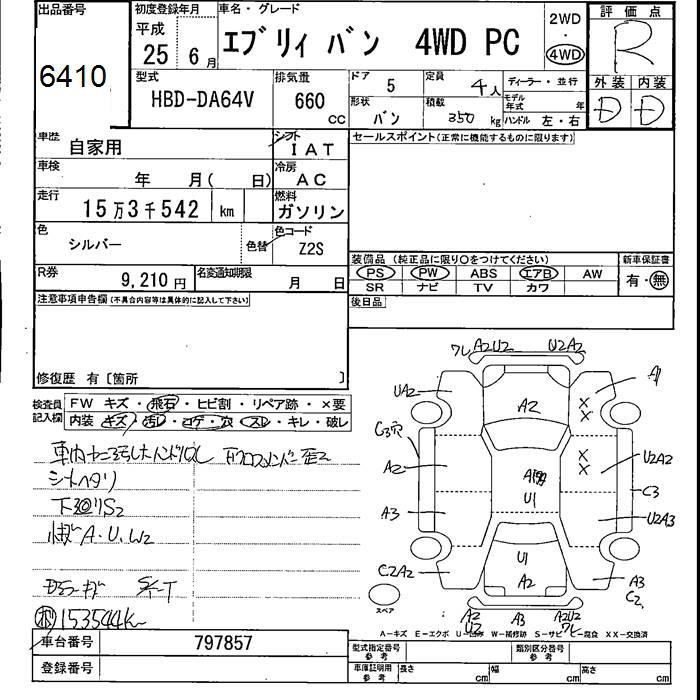 出品番号
6410
初度登録年月
平成 25 6月
車名・グレード
エブリィ バン 4WD PC
2WD
・
4WD
評価点
R
型式
HBD-DA64V
排気量
660 CC
ドア 5
定員 4人
ディーラー・並行
形状 バン
積載 350 kg
モデル年式 年
ハンドル 左・右
外装 内装
D D
車歴 自家用
シフト IAT
車検 年 月( 日)
冷房 AC
走行 15万3千542 km
燃料 ガソリン
色 シルバー
色替
色コード Z2S
R券 9,210円
名変通知期限 月 日
セールスポイント(正常に機能するものに限ります)
装備品(純正品に限り○をつけてください)
PS PW ABS エアB AW
SR ナビ TV カワ
新車保証書
有・無
後日品
注意事項申告欄(不具合内容等は具体的に記入して下さい)
修復歴 有〔箇所 〕
検査員記入欄
FW キズ・飛石・ヒビ割・リペア跡・×要
内装 キズ・汚レ・コゲ・穴・スレ・キレ・破レ
シートヘタリ
下回りS2
A・U・W2
153544K
ワレ A2U2 U2A2
UA2 A2 A1
× ×
A2 × × U2A2
U1 C3
A3 U2A3
U1
C2A2 A2 A3
C2
スペア
A2 A3 A2U2
U2
A-キズ E-エクボ U-凹み W-補修跡 S-サビ C-腐食 XX-交換済
車台番号 797857
登録番号
型式指定番号 参考
類別区分番号 参考
車庫証明用 参考
長さ cm
幅 cm
高さ cm